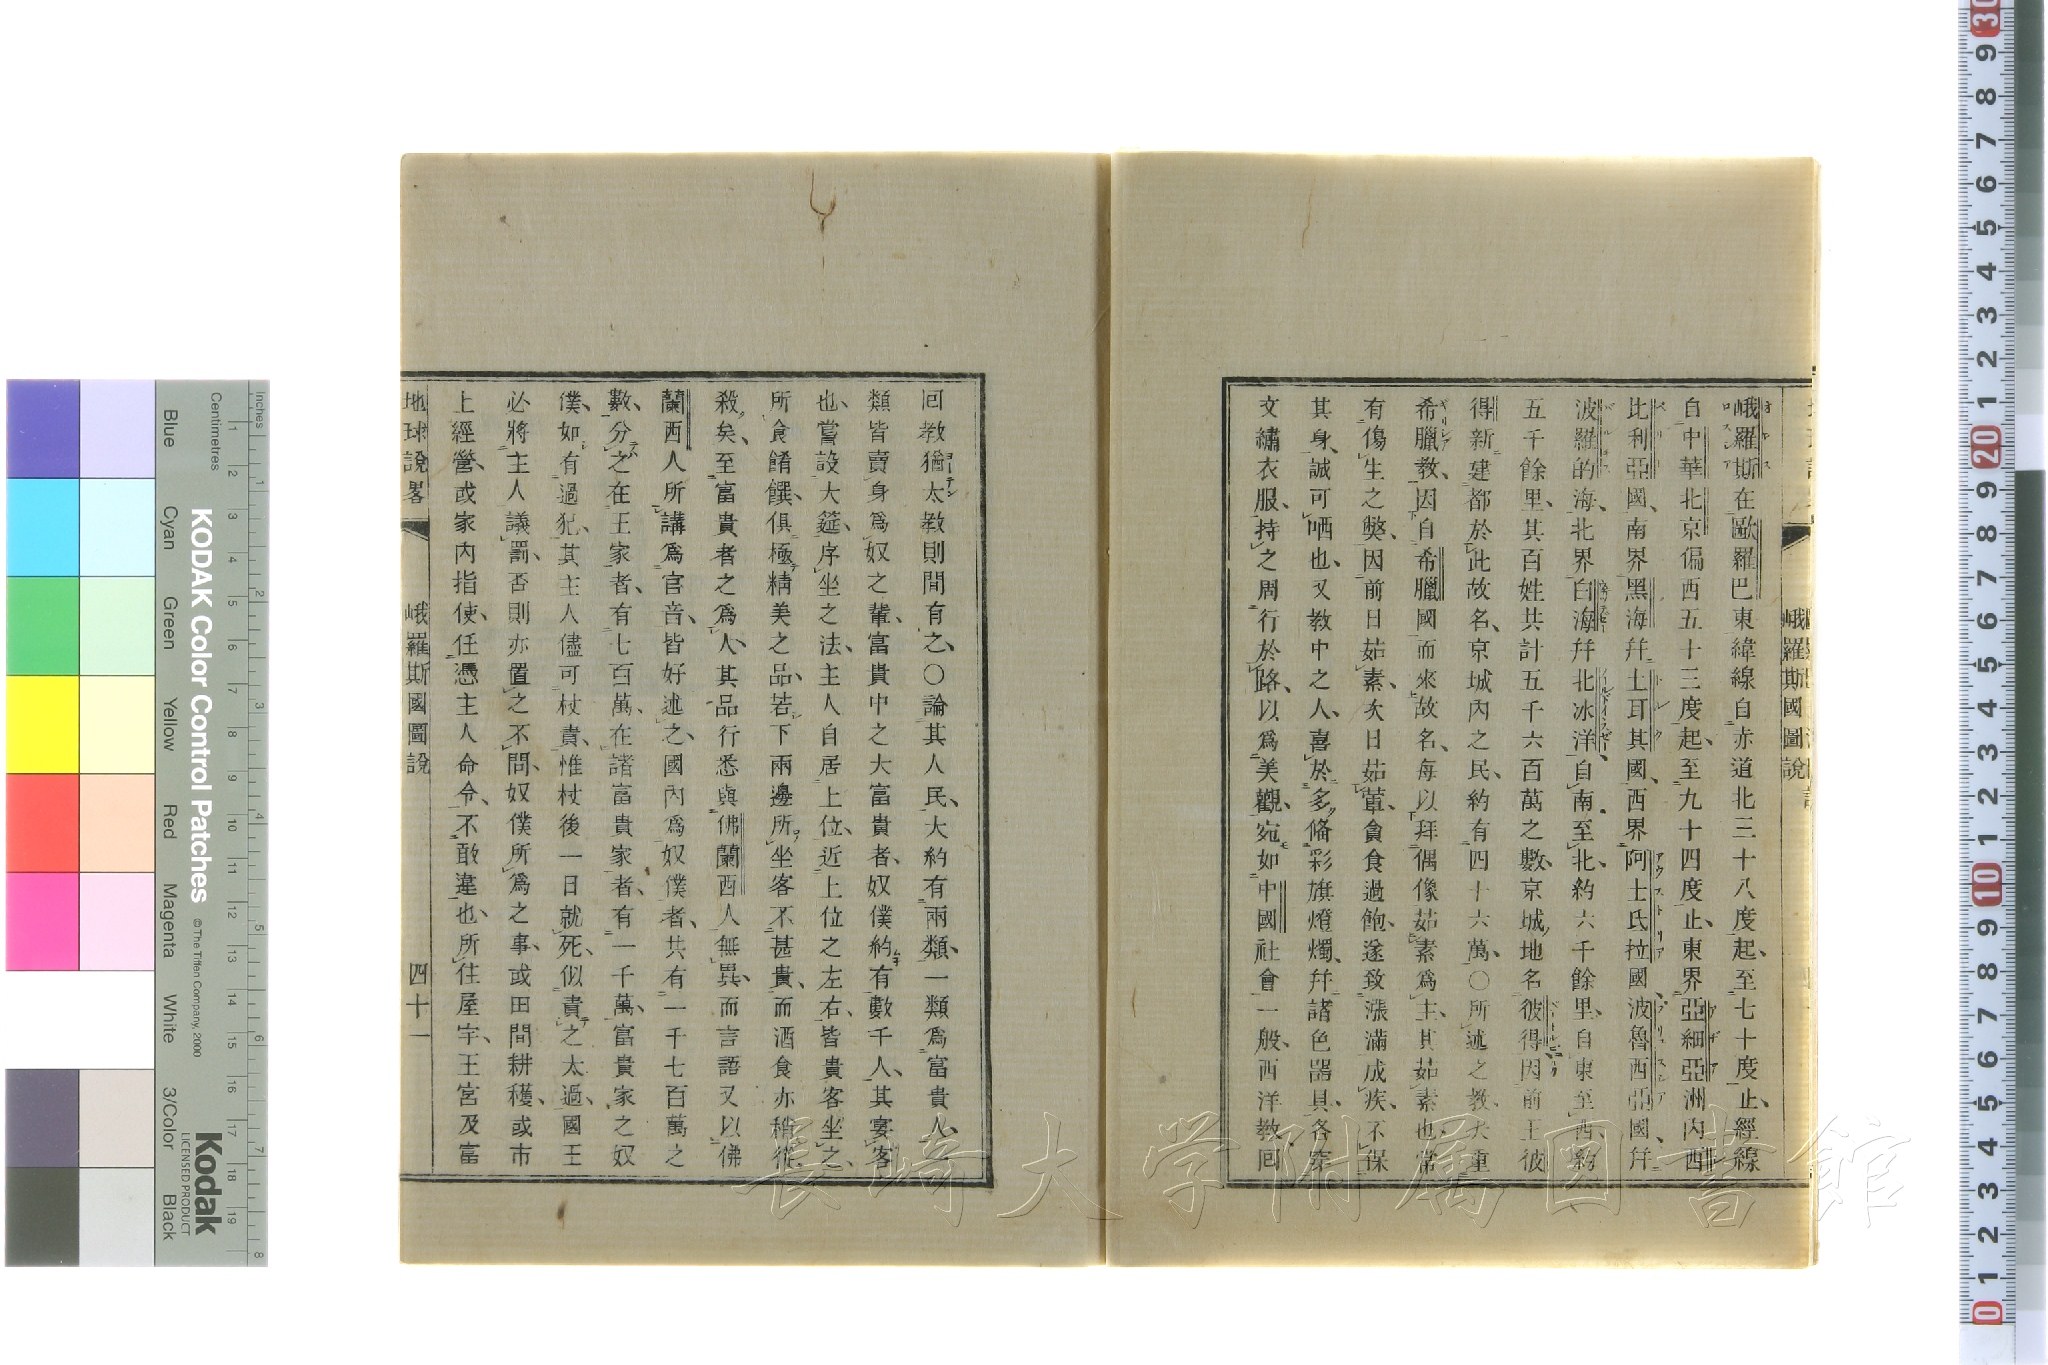 峨羅斯國圖說
峨羅斯在歐羅巴東緯線自赤道北三十八度起、至七十度止、經線
自中華北京偏西五十三度起、至九十四度止、東界亞細亞洲內西
比利亞國、南界黑海幷土耳其國、西界阿士氏拉國、波魯西亞國、幷
波羅的海、北界白海幷北冰洋、自南至北、約六千餘里、自東至西、約
五千餘里、其百姓共計五千六百萬之數、京城地名彼得因前王彼
得新建都於此故名、京城內之民、約有四十六萬、〇所述之教、大重
希臘教、因自希臘國而來故名、每以拜偶像茹素爲主、其茹素也、常
有傷生之獘、因前日茹素、次日茹葷、貪食過飽、遂致漲滿成疾、不保
其身、誠可哂也、又教中之人、喜於多俻彩旗燈燭、幷諸色器具、各穿
文繡衣服、持之周行於路、以爲美觀、宛如中國社會一般、西洋教、囘
回教猶太教則間有之、〇論其人民、大約有兩類、一類爲富貴人、
類皆賣身爲奴之輩、富貴中之大富貴者、奴僕約有數千人、其宴客
也、嘗設大筵、序坐之法、主人自居上位、近上位之左右、皆貴客坐之
所食餚饌、俱極精美之品、若下兩邊所坐客不甚貴、而酒食亦稍從
殺矣、至富貴者之爲人、其品行悉與佛蘭西人無異、而言語又以佛
蘭西人所講爲官音、皆好述之、國內爲奴僕者、共有一千七百萬之
數、分之在王家者、有七百萬、在諸富貴家者、有一千萬、富貴家之奴
僕、如有過犯、其主人儘可杖責、惟杖後一日就死、似責之太過、國王
必將主人議罰、否則亦置之不問、奴僕所爲之事、或田間耕穫、或市
上經營、或家內指使、任憑主人命令、不敢違也、所住屋宇、王宮及富
地球說畧
峨羅斯國圖說
四十一
長崎大学附属図書館
KODAK Color Control Patches
© The Tiffen Company, 2000
Kodak
LICENSED PRODUCT
Inches
Centimetres
Blue
Cyan
Green
Yellow
Red
Magenta
White
3/Color
Black